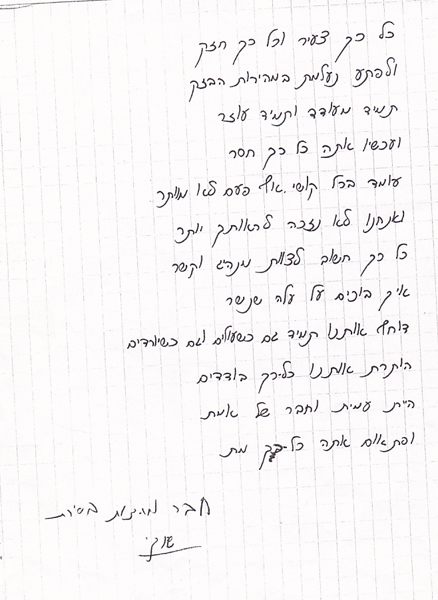 כל כך צעיר וכל כך חזק
ולפתע נעלמת במהירות הבזק
תמיד מעודד ותמיד עוזר
ועכשיו אתה כל כך חסר
עומד בכל קושי. אף פעם לא מוותר
ואנחנו לא נזכה לראותך יותר
כל כך חשוב לצוות מנהג וקשר
איך בוכים על עלה שנשר
דוחף אותנו תמיד גם כשעולים וגם כשיורדים
הותרת אותנו כל-כך בודדים
היית עמית וחבר של אמת
ופתאום אתה כל-כך מת
חבר
שוקי